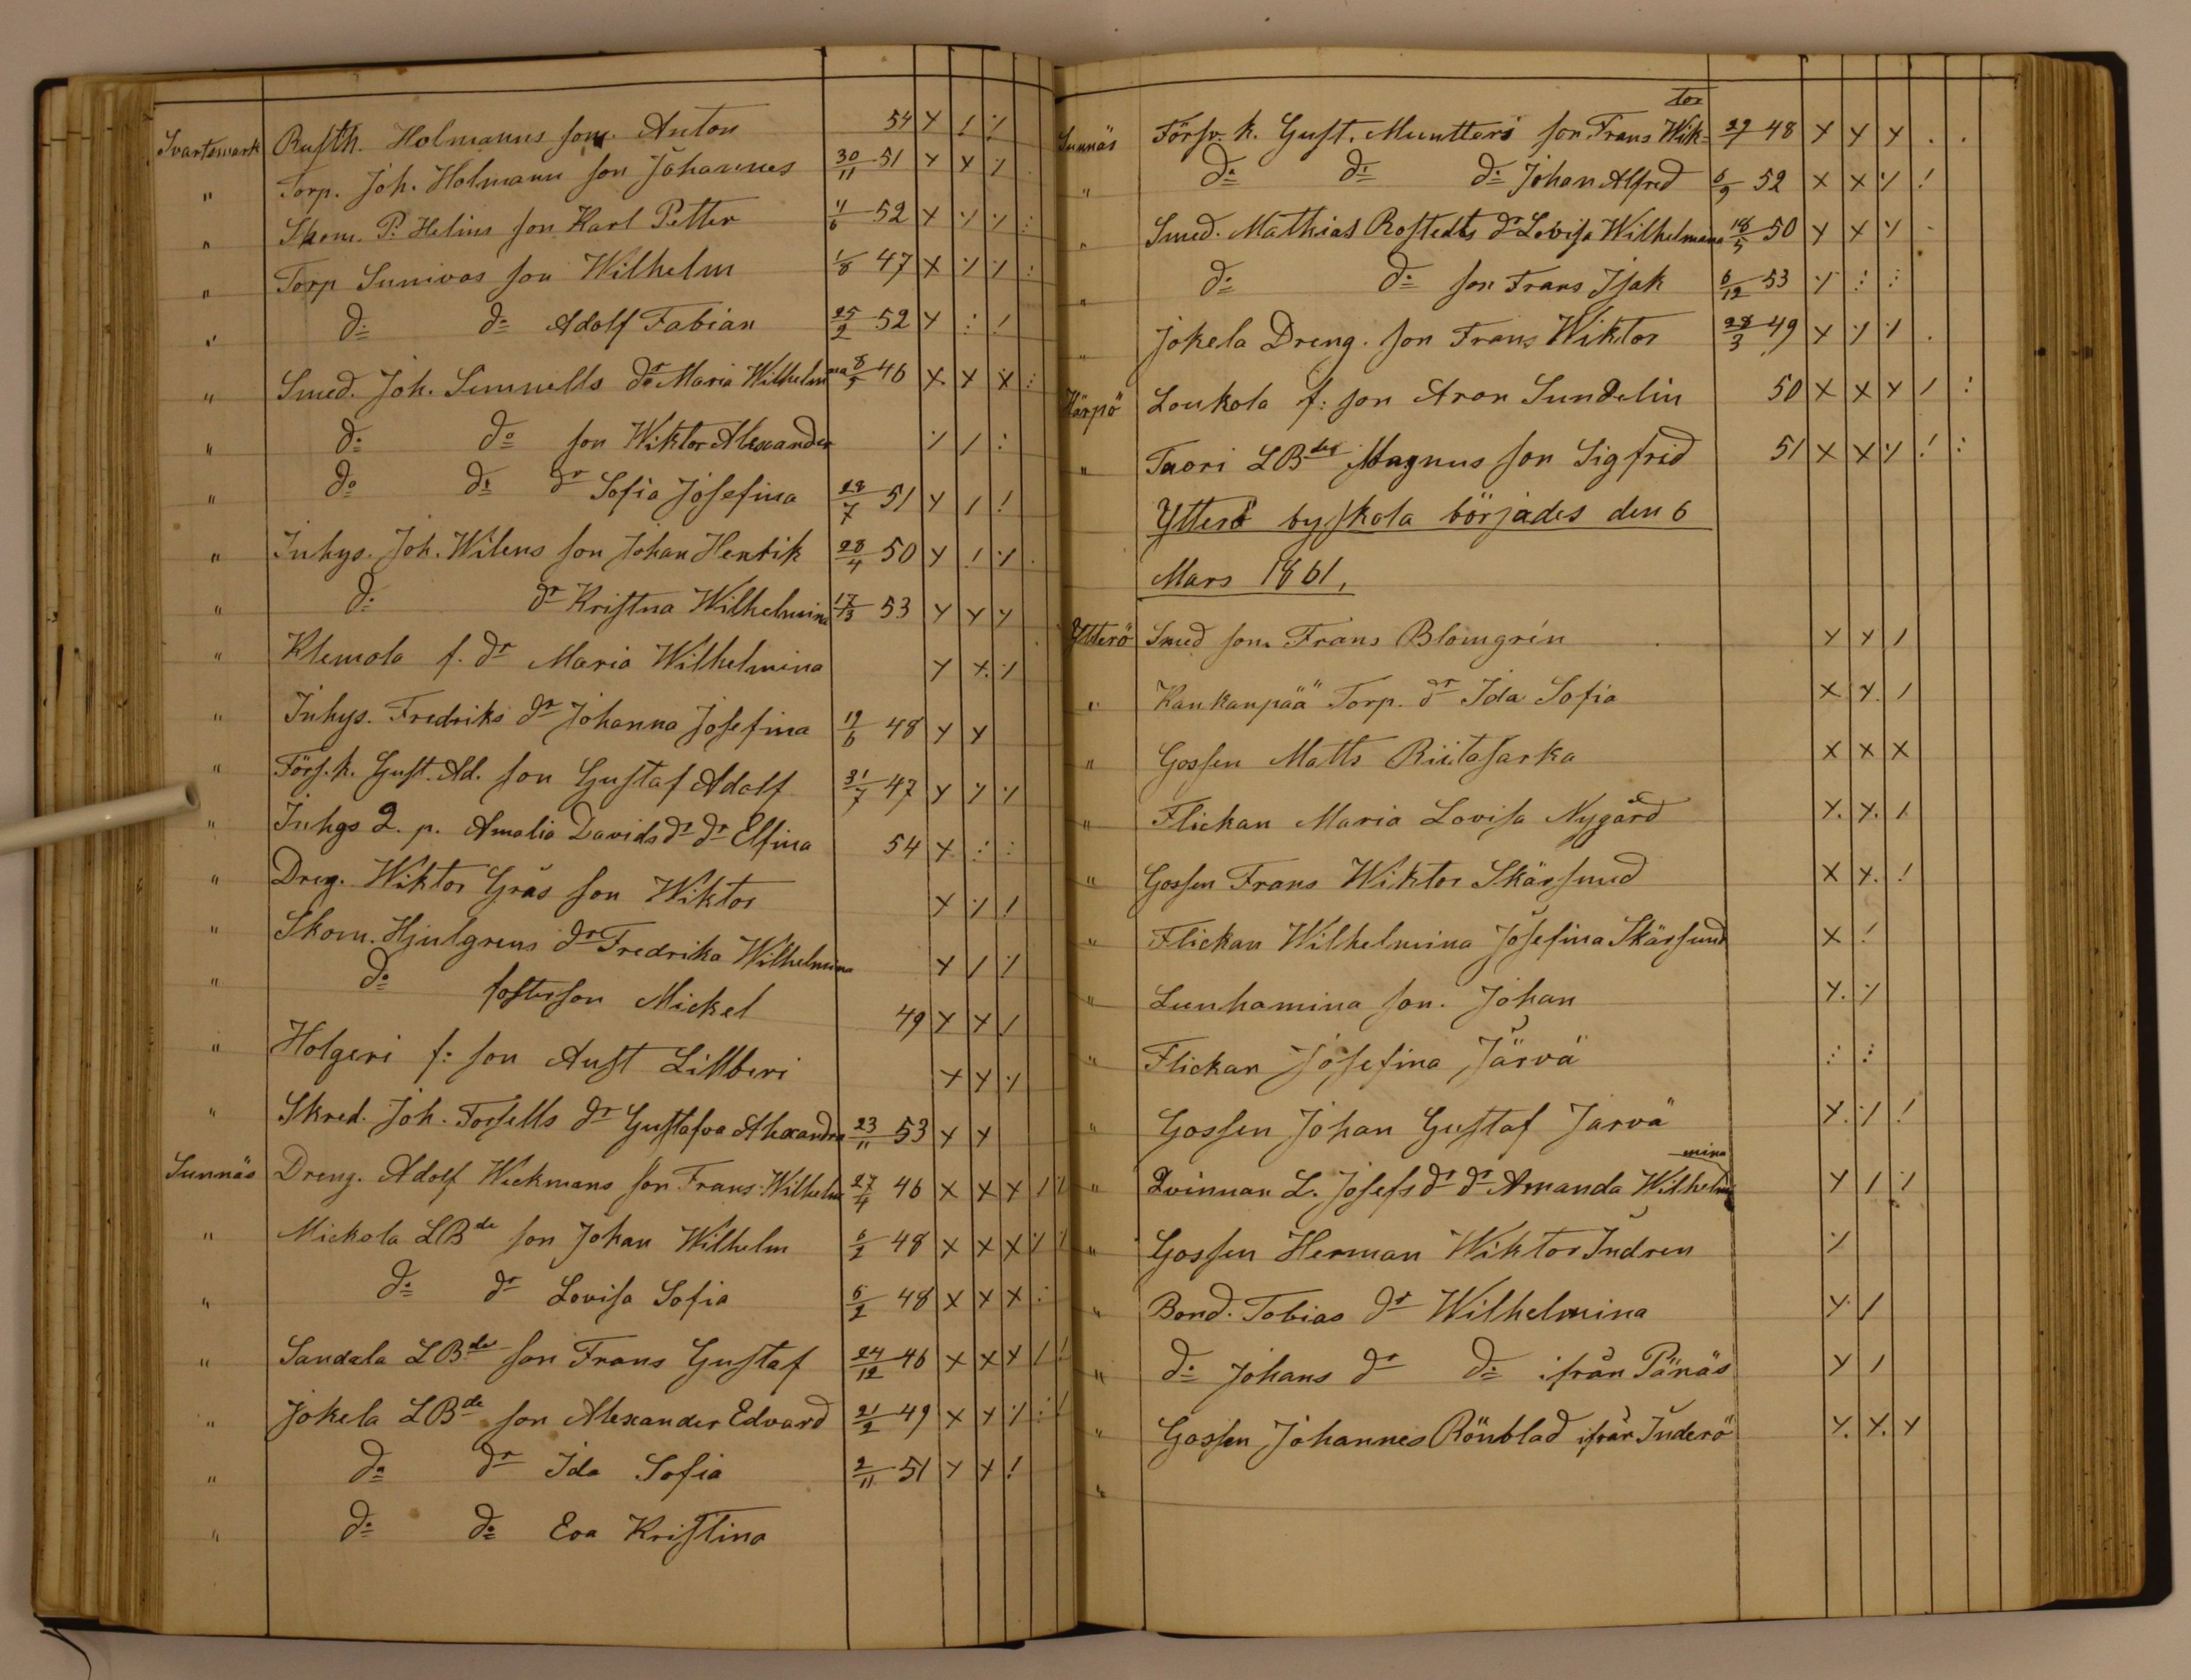 Svartsmark Rusth. Holmanns son. Anton 54 x / ٪
" Torp. Joh. Holmann son Johannes 30/11 51 x x ٪
" Skom. P. Helins son Karl Petter 11/6 52 x ٪ ٪ :
" Torp Sunivos son Wilhelm 1/8 47 x ٪ ٪ :
" d:o d:o Adolf Fabian 25/2 52 x : !
" Smed. Joh. Simnells dr Maria Wilhelmina 8/5 46 x x x :
" d:o d:o son Wiktor Alexander ٪ / :
" d:o d:o dr Sofia Josefina 28/7 51 x / !
" Inhys. Joh. Wilens son Johan Henrik 28/4 50 x ! ٪
" d:o dr Kristina Wilhelmina 17/3 53 x x x
" Klemola f. dr Maria Wilhelmina x x. ٪
" Inhys. Fredriks dr Johanna Josefina 19/6 48 x x
" Förs. k. Gust. Ad. son Gustaf Adolf 31/7 47 x ٪ ٪
" Inhys Q. p. Amalia Davids dr dr Elfina 54 x : :
" Dreg. Wiktor Grås son Wiktor x ٪ !
" Skom. Hjulgrens dr Fredrika Wilhelmina x / ٪
" d:o fosterson Mickel 49 x x /
" Holgeri f: son Aust Lillberi x x ٪
" Skred. Joh. Forsells dr Gustafva Alexandra 23/11 53 x x
Sunnäs Dreng. Adolf Wickmans son Frans Wilhelm 27/4 46 x x x / ٪
" Mickola LBde son Johan Wilhelm 6/2 48 x x x ٪ ٪
" d:o dr Lovisa Sofia 6/2 48 x x x :
" Sandala LBde son Frans Gustaf 24/12 46 x x x / !
" Jokela LBde son Alexander Edvard 21/2 49 x x ٪ : !
" d:o dr Ida Sofia 2/11 51 x x !
" d:o d:o Eva Kristina
Sunnäs Försv. k. Gust. Muntters son Frans Wik=tor 29/7 48 x x x . .
" d:o d:o d:o Johan Alfred 6/9 52 x x ٪ !
" Smed. Mathias Rostedts dr Lovisa Wilhelmina 18/5 50 x x ٪ -
" d:o d:o son Frans Isak 6/12 53 ٪ : :
" Jokela Dreng. son Frans Wiktor 28/3 49 x ٪ ٪ .
Härpö Loukola f: son Aron Sundelin 50 x x x / :
" Taori LBdes Magnus son Sigfrid 51 x x ٪ ! :
Ytterö byskola börjades den 6
Mars 1861.
Ytterö Smed son Frans Blomgrén x x /
" Kankanpää Torp. dr Ida Sofia x x. /
" Gossen Matts Riitasarka x x x
" Flickan Maria Lovisa Nygård x. x. /
" Gossen Frans Wiktor Skärsund x x. !
" Flickan Wilhelmina Josefina Skärsund x !
" Lunhamina son. Johan x. ٪
" Flickan Josefina Järvä : :
" Gossen Johan Gustaf Jarvä x. ٪ !
" Qvinnan L. Josefs dr dr Amanda Wilhelmina x / ٪
" Gossen Herman Wiktor Indren ٪
" Bond. Tobias dr Wilhelmina x. /
" d:o Johans dr d:o ifrån Pänäs x /
" Gossen Johannes Rönblad ifrån Inderö x. x. x
"